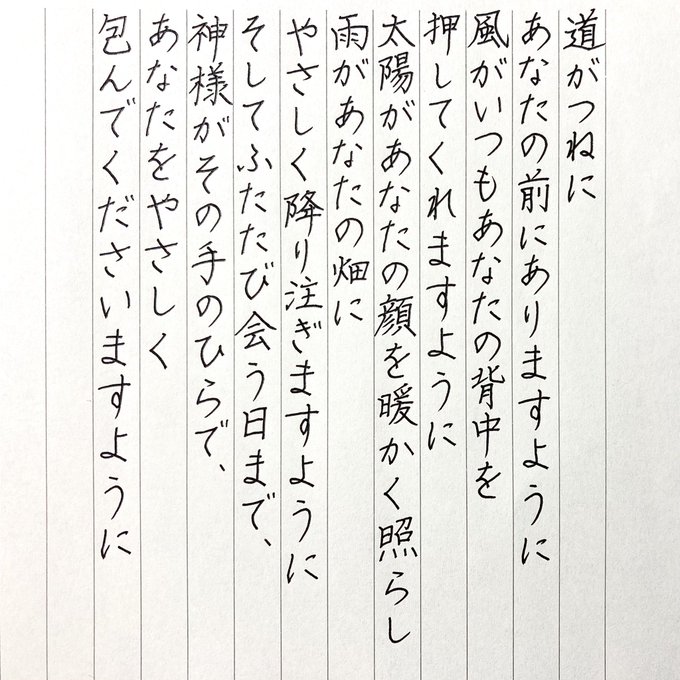 道がつねに
あなたの前にありますように
風がいつもあなたの背中を
押してくれますように
太陽があなたの顔を暖かく照らし
雨があなたの畑に
やさしく降り注ぎますように
そしてふたたび会う日まで、
神様がその手のひらで、
あなたをやさしく
包んでくださいますように